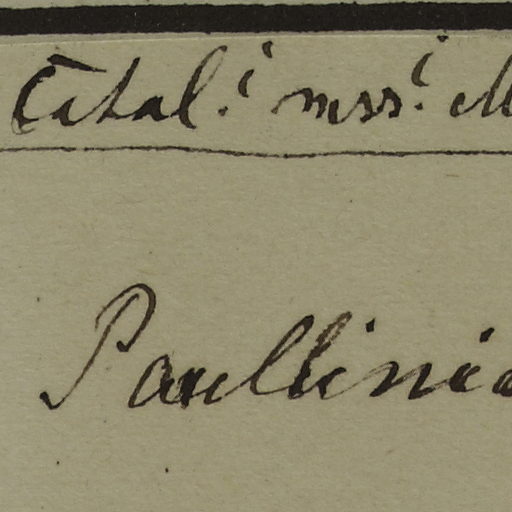 Catal.i mss.i M
Paullinia